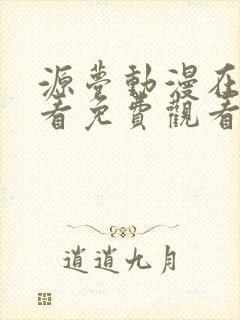 源夢動漫在
看免費觀看
逍遙九月